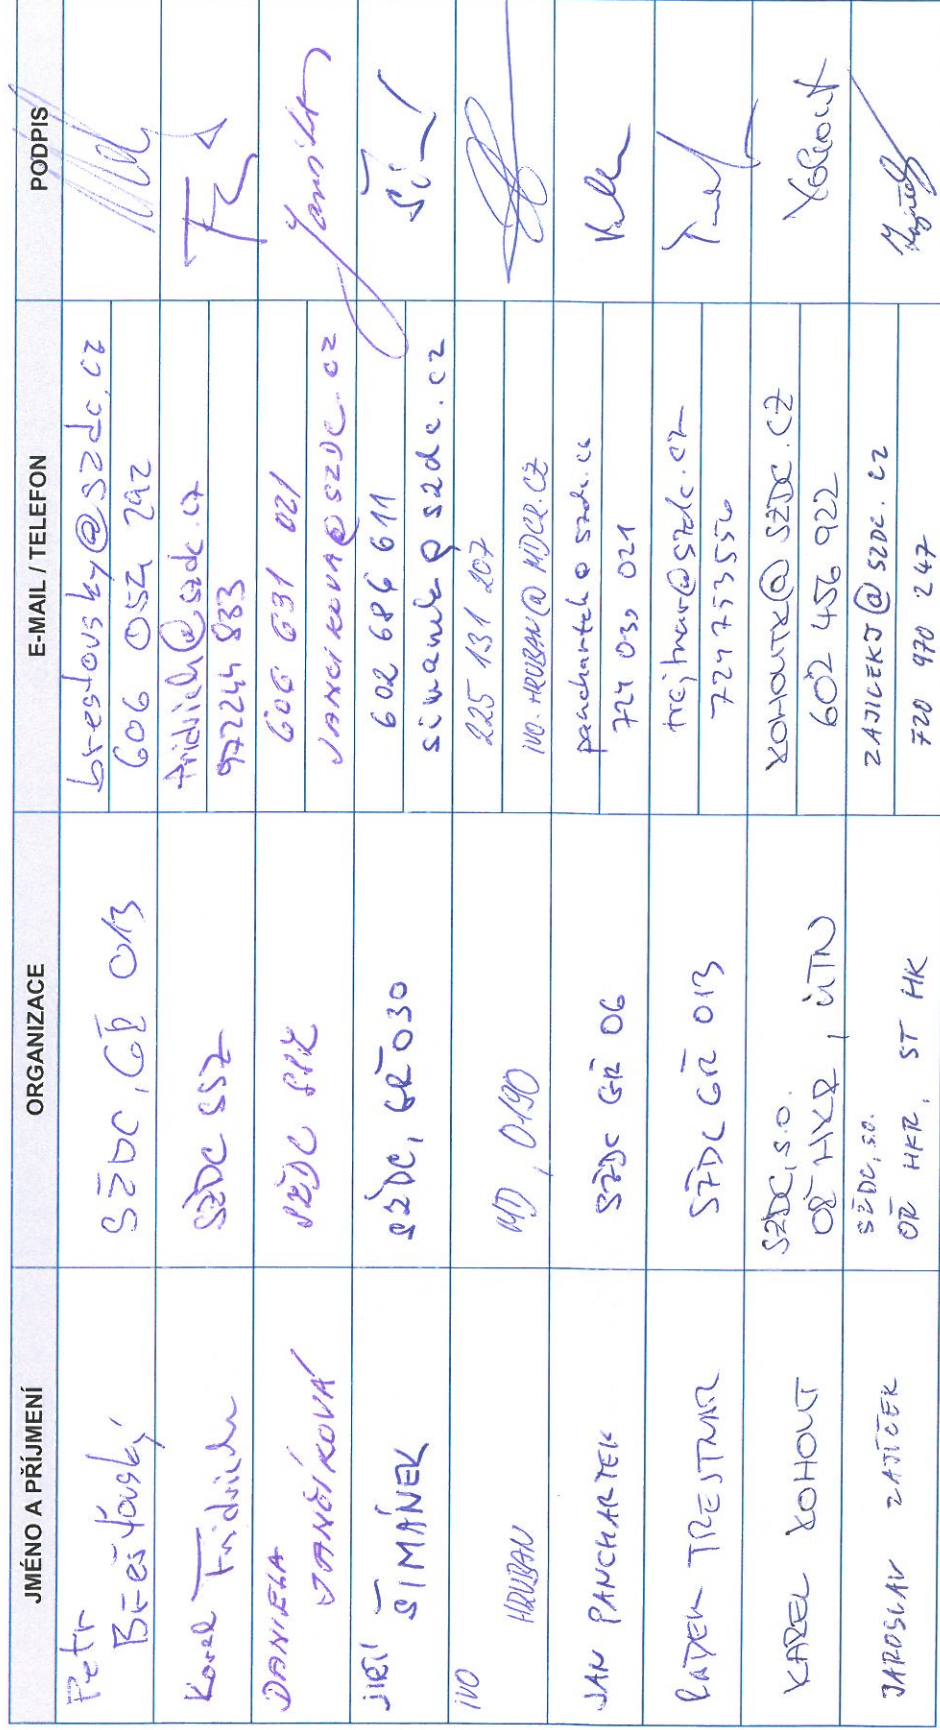 JMÉNO A PŘÍJMENÍ ORGANIZACE E-MAIL / TELEFON PODPIS
Petr
Břešťovský
SŽDC, GŘ 013
brestovsky@szdc.cz
606 052 292
Karel Fridrich
SŽDC SSZ
fridrich@szdc.cz
972244 833
DANIELA
JANČÍKOVÁ
SŽDC
606 631 021
JANCIKOVA@SZDC.CZ
JIŘÍ
ŠIMÁNEK
SŽDC, GŘ 030
602 686 611
simanek@szdc.cz
IVO
HRUBAN
MD, 0190
225 131 207
IVO.HRUBAN@MDCR.CZ
JAN PANCHARTEK
SŽDC GŘ 06
panchartek@szdc.cz
724 030 021
RADEK TREJTNAR
SŽDC GŘ 013
trejtnar@szdc.cz
724 753 556
KAREL KOHOUT
SŽDC, s.o.
OŘ HKR, ÚTN
KOHOUTK@SZDC.CZ
602 456 922
Kohout
JAROSLAV ZAJÍČEK
SŽDC, s.o.
OŘ HKR, ST HK
ZAJICEKJ@SZDC.CZ
720 970 247